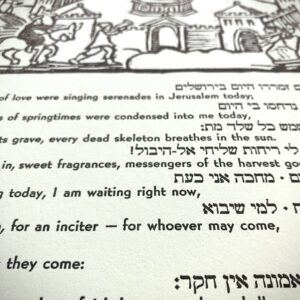 זמררו היום בירושלים
of love were singing serenades in Jerusalem today,
נדחסו בי היום
of springtimes were condensed into me today,
כל שלד מת:
its grave, every dead skeleton breathes in the sun.
לי ריחות שליחי אל-היבול!
in, sweet fragrances, messengers of the harvest
היום - מחכה אני כעת
today, I am waiting right now,
- למי שיבוא
for an inciter — for whoever may come,
they come:
אמונה אין חקר: